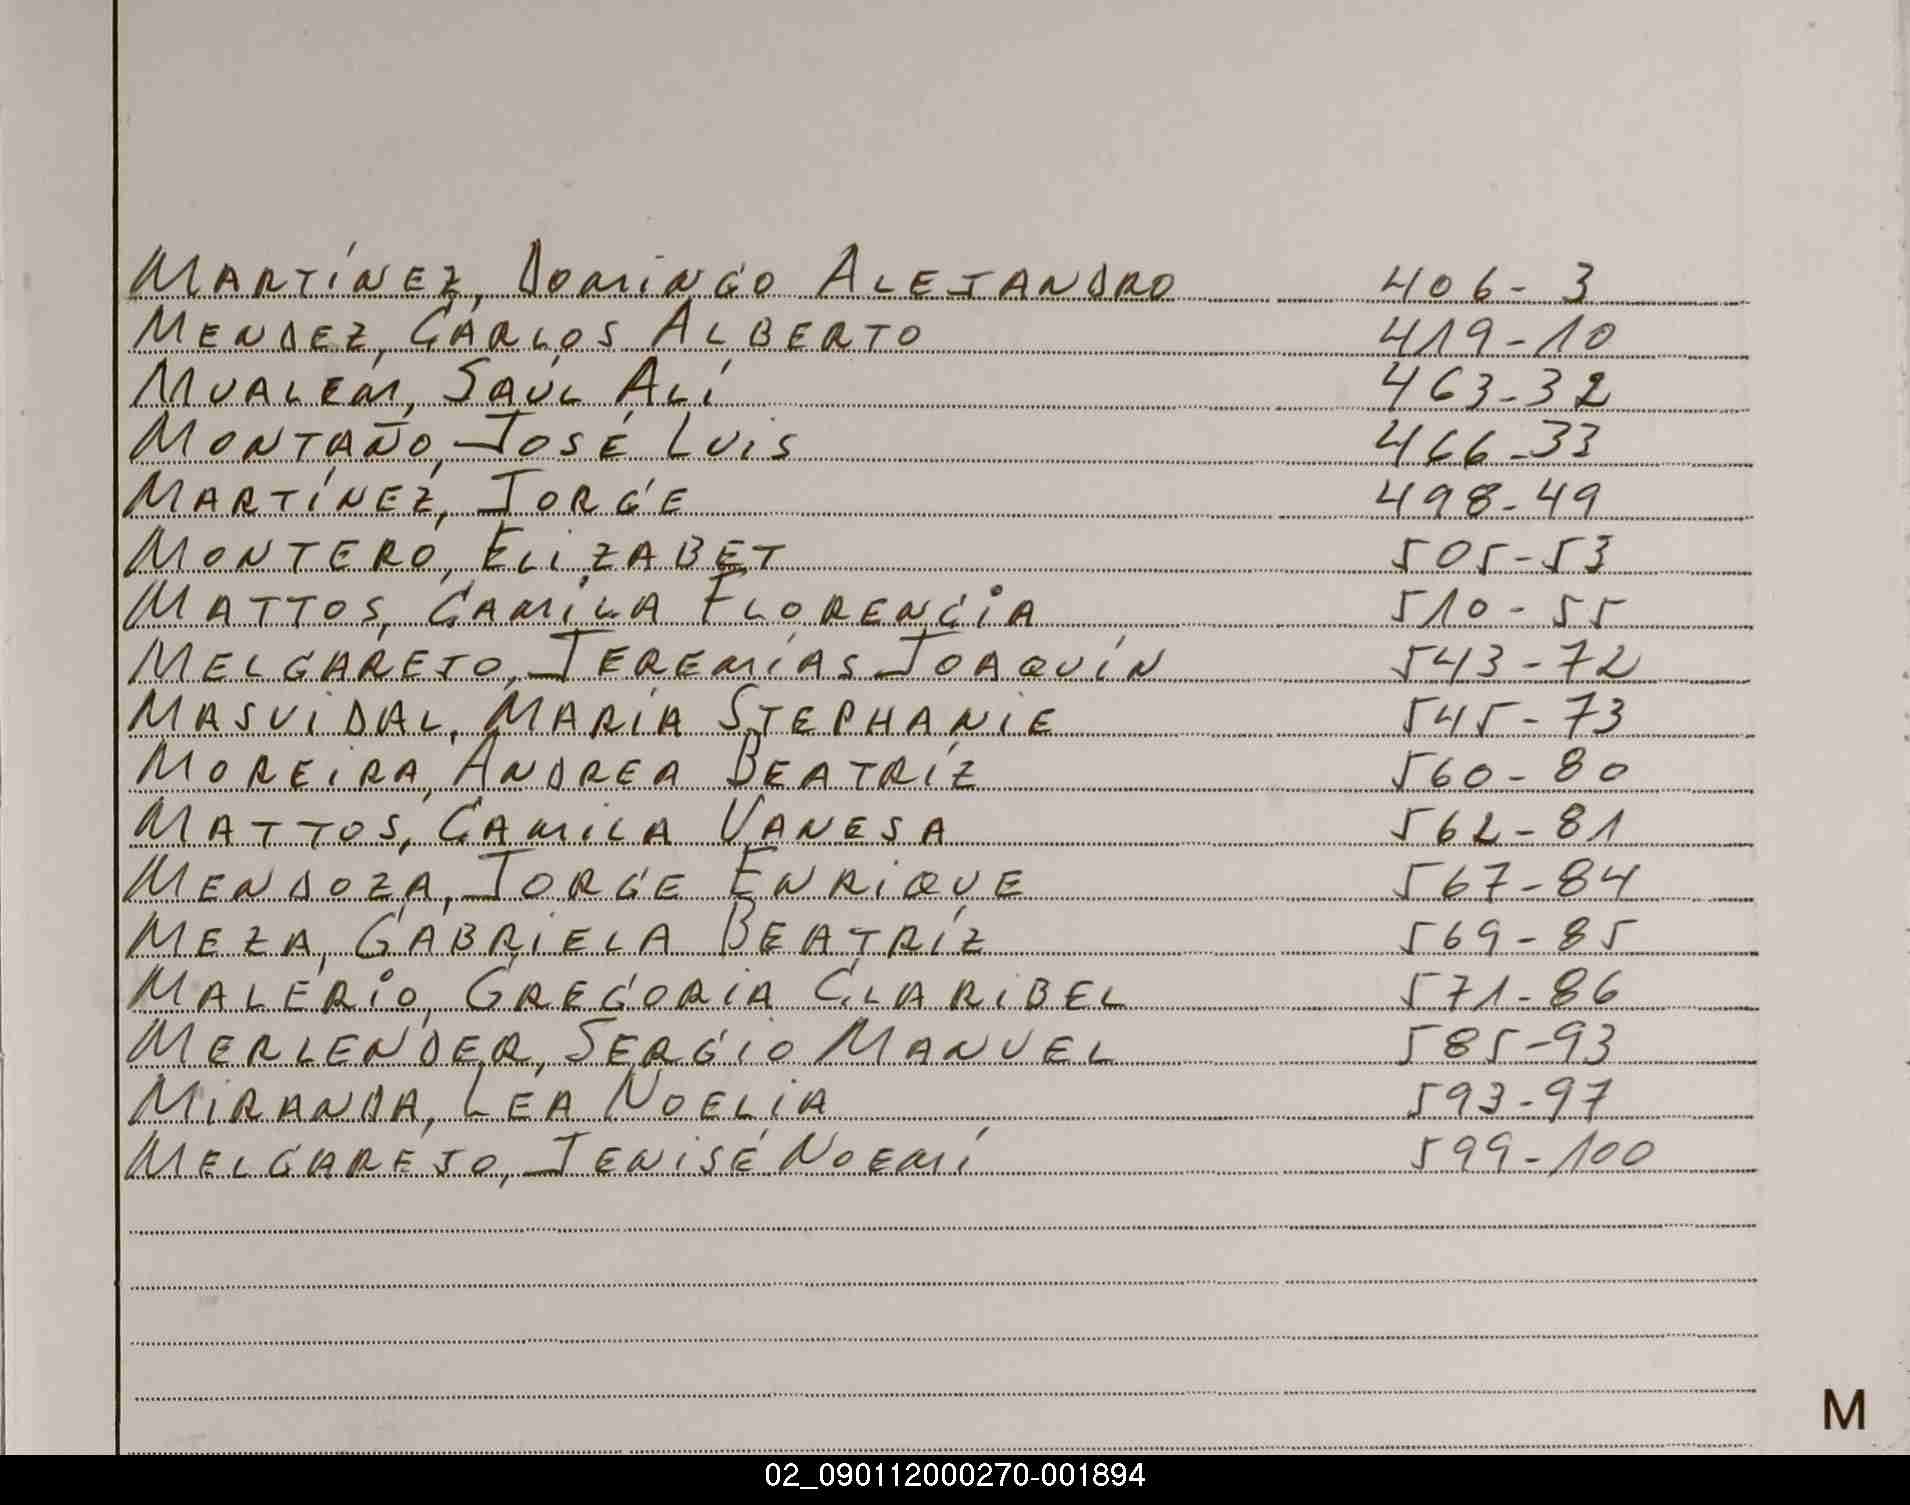 MARTÍNEZ, DOMINGO ALEJANDRO 406-3
MENDEZ, CARLOS ALBERTO 419-10
MUALEM, SAÚL ALÍ 463-32
MONTAÑO, JOSÉ LUIS 466-33
MARTÍNEZ, JORGE 498-49
MONTERO, ELIZABET 505-53
MATTOS, CAMILA FLORENCIA 510-55
MELGAREJO, JEREMÍAS JOAQUÍN 543-72
MASVIDAL, MARÍA STEPHANIE 545-73
MOREIRA, ANDREA BEATRÍZ 560-80
MATTOS, CAMILA VANESA 562-81
MENDOZA, JORGE ENRIQUE 567-84
MEZA, GABRIELA BEATRÍZ 569-85
MALERIO, GREGORIA CLARIBEL 571-86
MERLENDER, SERGIO MANUEL 585-93
MIRANDA, LEA NOELIA 593-97
MELGAREJO, JENISÉ NOEMÍ 599-100
M
02_090112000270-001894